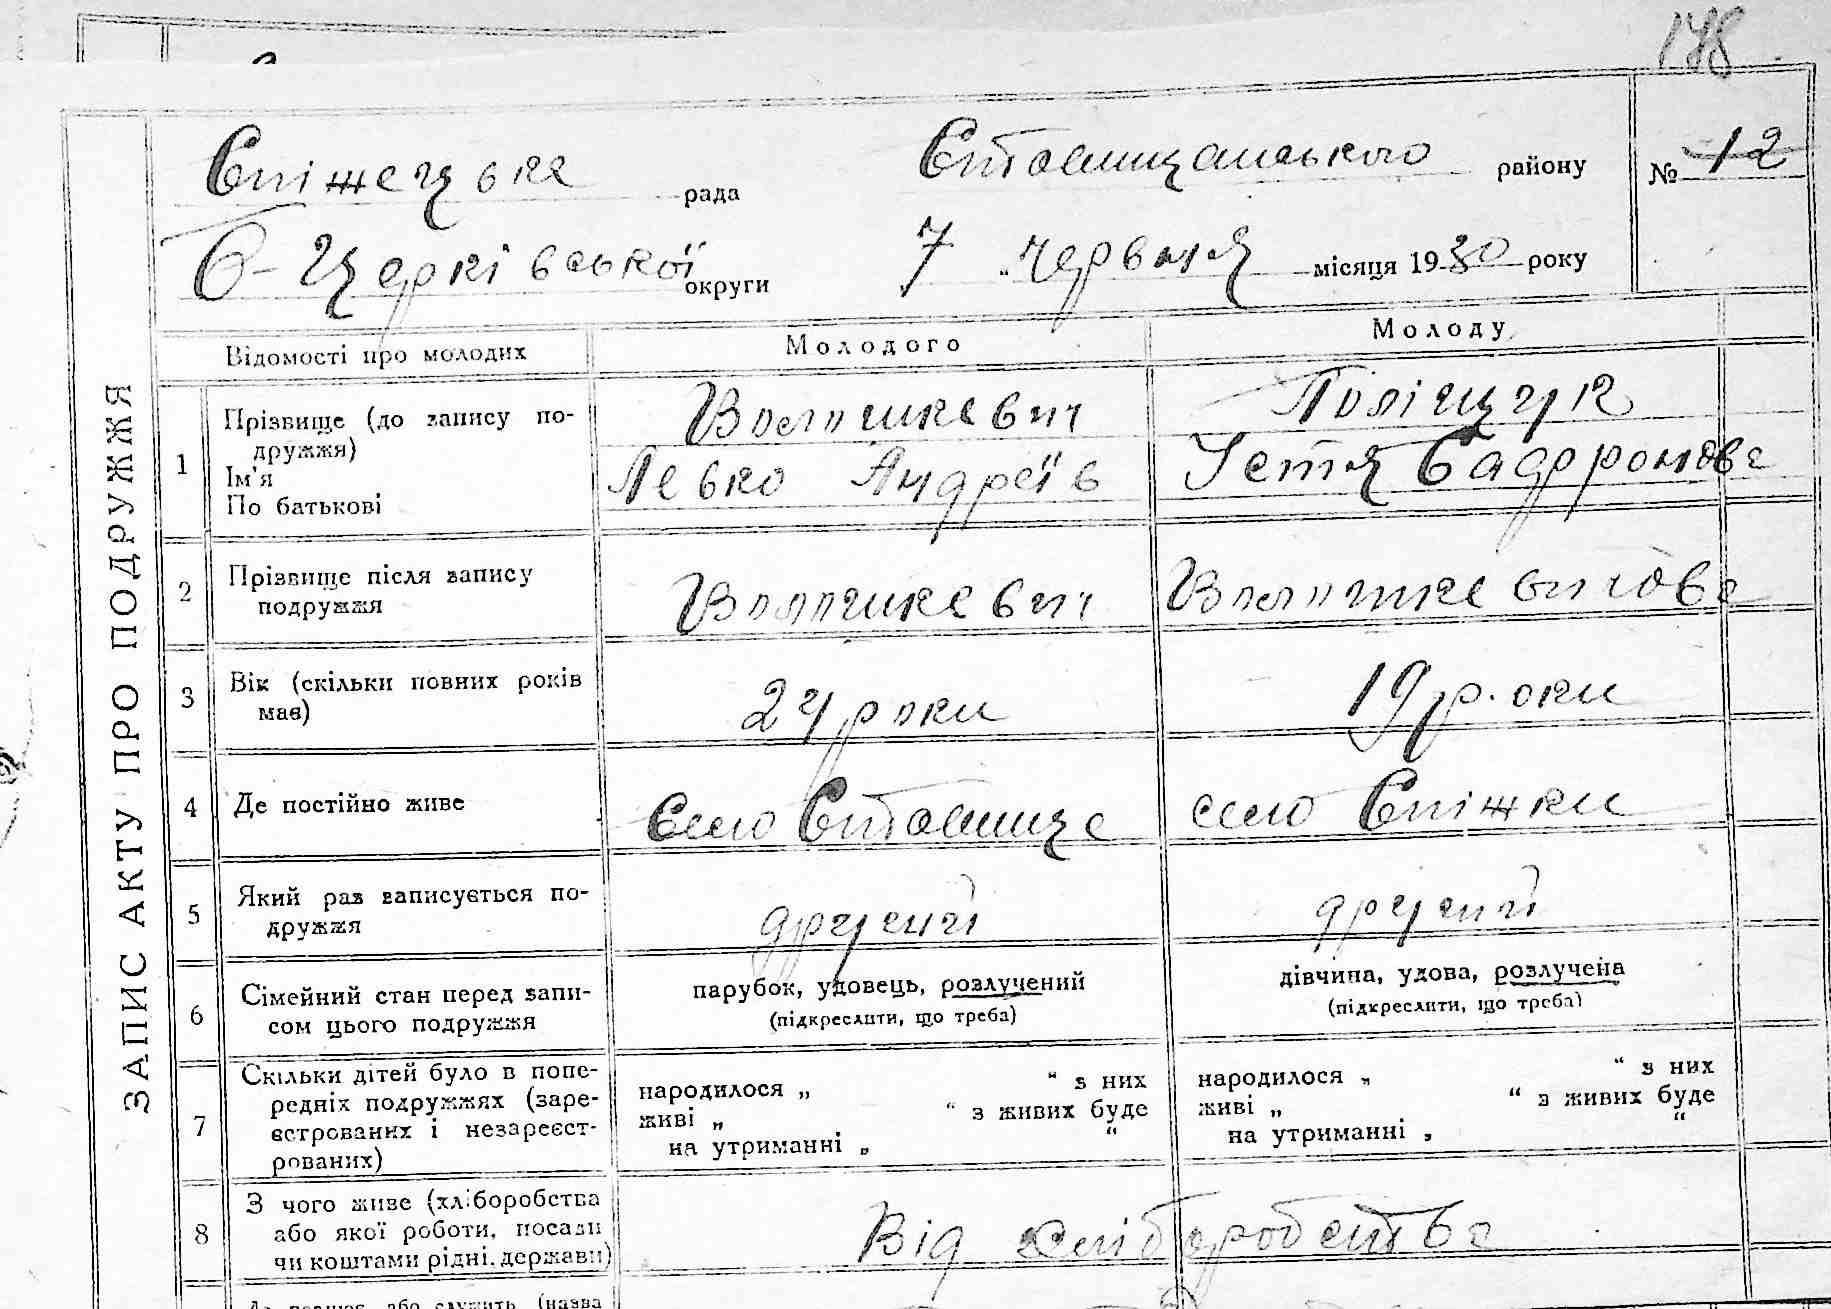 178
Спіжецька рада Ставищанського району № 12
Б-Церківської округи 7 „ червня місяця 1930 року
Відомості про молодих Молодого Молоду
ЗАПИС АКТУ ПРО ПОДРУЖЖЯ
1 Прізвище (до запису по-
дружжя)
Ім'я
По батькові
Волошкевич
Левко Андреїв
Поліщук
Устя Садфронова
2 Прізвище після запису
подружжя
Волошкевич
Волошкевичова
3 Вік (скільки повних років
має)
24 роки
19 р. оки
4 Де постійно живе
Село Ставище
село Спіжки
5 Який раз записується по-
дружжя
другий
другий
6 Сімейний стан перед запи-
сом цього подружжя
парубок, удовець, розлучений
(підкреслити, що треба)
дівчина, удова, розлучена
(підкреслити, що треба)
7 Скільки дітей було в попе-
редніх подружжях (заре-
єстрованих і незареєст-
рованих)
народилося „ “ з них
живі „ “ з живих буде
на утриманні „ “
народилося „ “ з них
живі „ “ з живих буде
на утриманні „ “
8 З чого живе (хліборобства
або якої роботи, посади
чи коштами рідні, держави)
Від хліборобства
або служить (назва